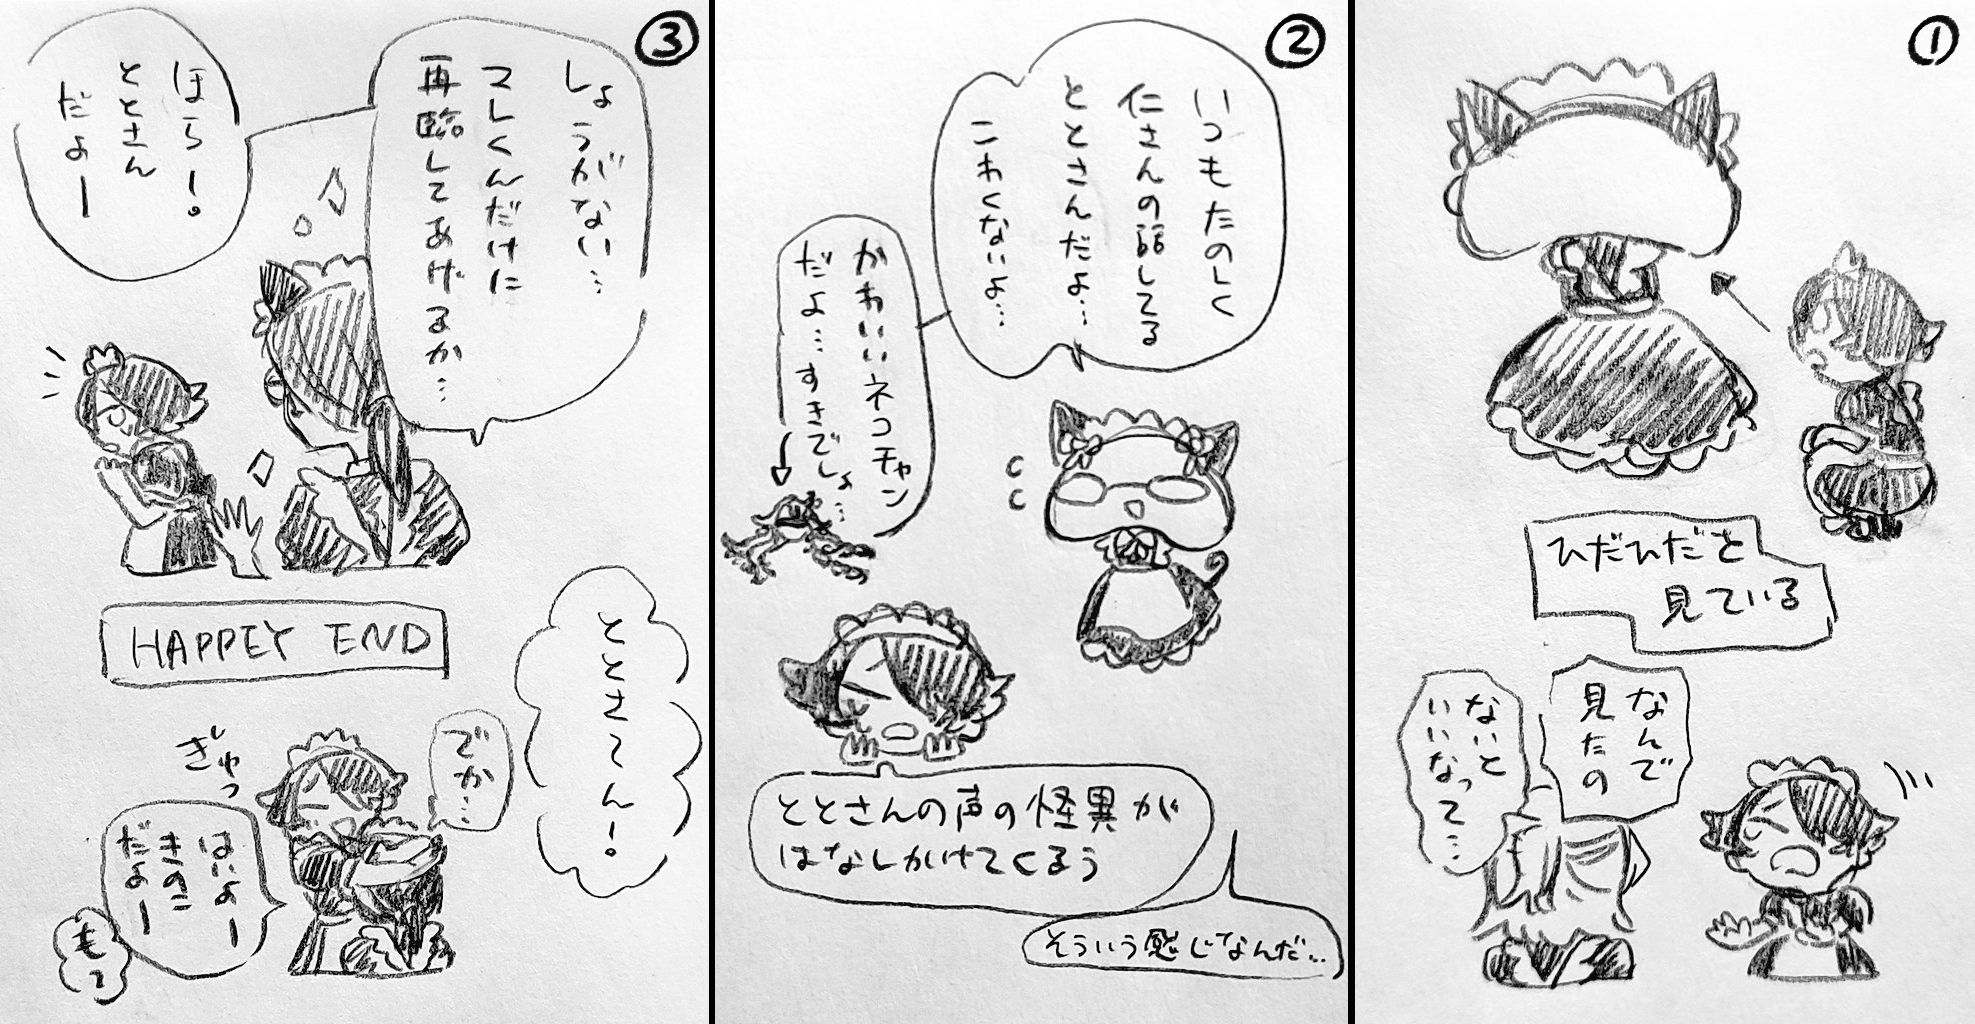 ①
ひだひだを
見ている
なんで
見たの
ないと
いいなって…
②
いつもたのしく
仁さんの話してる
ととさんだよ…
こわくないよ…
かわいいネコチャン
だよ…すきでしょ…
ととさんの声の怪異が
はなしかけてくるう
そういう感じなんだ…
③
しょうがない…
マレくんだけに
再臨してあげるか…
ほら!
ととさん
だよー
HAPPEY END
ととさてん!
でか…
ぎゅっ
はいよー
きのこ
だよー
もっ